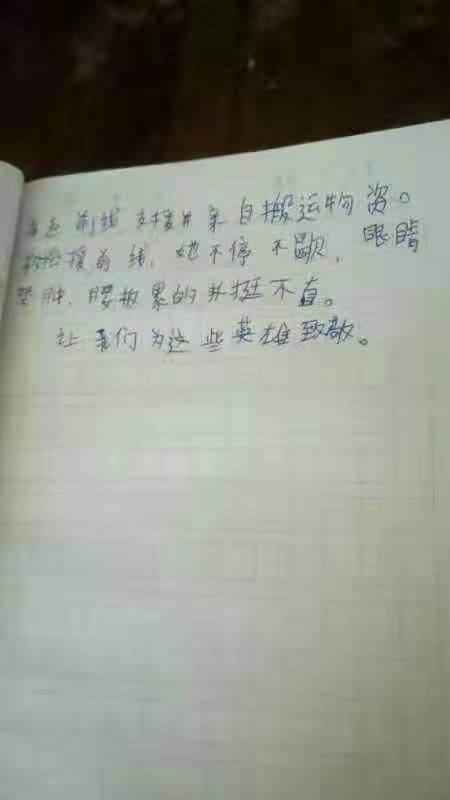 前线支援并亲自搬运物资。
援前线，她不停不歇，眼睛
肿，腰板累的都挺不直。
让我们为这些英雄致敬。